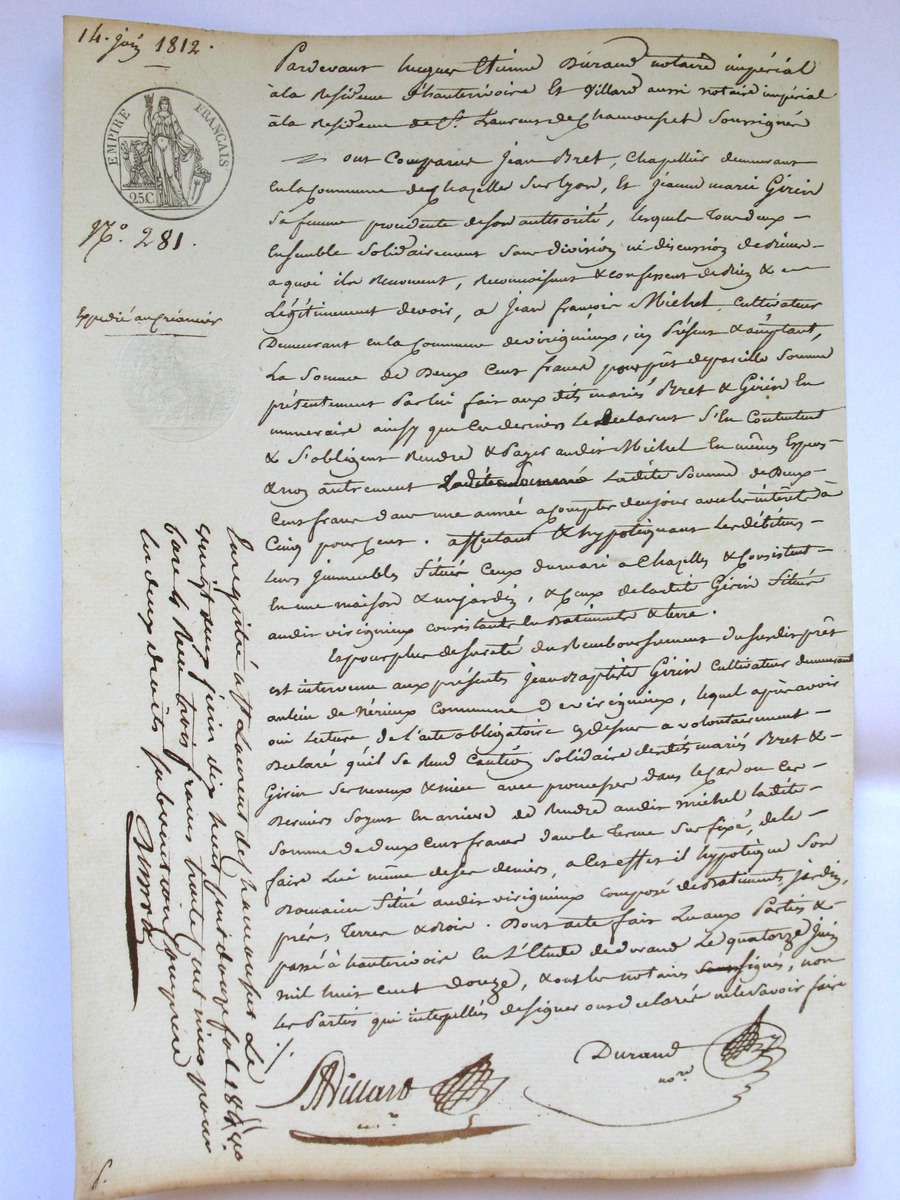 14. juin 1812.
EMPIRE FRANÇAIS
25C
N.º 281.
Expédié au créancier
Pardevant Jacques Etienne Durand notaire impérial
à la Residence d'hauterivoire Et Villard aussi notaire impérial
à la Residence de St. Laurent de Chamousset Soussignés
ont Comparu Jean Bret, Chapellier demeurant
en la Commune de Chazelle Sur Lyon, Et Jeanne marie Girin
Sa femme procédente de son authorité, lesquels Tous deux
Ensemble Solidairement Sans division ni discussion
a quoi ils Renoncent, Reconnoissent & confessent de Bien &
Légitimement devoir, a Jean françois Michel, cultivateur
Demeurant en la Commune de virigneux, ici Présent & acceptant,
La Somme de Deux Cent francs pour prêt de pareille Somme
présentement Par lui fait aux dits mariés Bret & Girin En
numeraire ainsy que Ces derniers Le Declarent S'En Contentent
& S'obligent Rendre & Payer audit Michel En mêmes Espèces
& non autrement ladite Somme Ladite Somme de Deux
Cent francs dans une année a compter de ce jour avec les interêts à
Cinq pour Cent. affectant & hypotéquant les débiteurs
leurs immeubles Situés Ceux du mari a Chazelles & Consistent
En une maison & un jardin, & Ceux de ladite Girin Situés
audit virigneux consistants en Batiments & terre.
Et pour plus de sureté du Remboursement du susdit prêt
est intervenu aux présentes Jean Baptiste Girin cultivateur demeurant
au lieu de Nérieux Commune de virigneux, lequel après avoir
oui Lecture de l'acte obligatoire cy dessus a volontairement
Déclaré qu'il Se Rend Caution Solidaire des dits mariés Bret &
Girin Ses neveux & niece avec promesse dans le cas ou Ces
Derniers Soyent En arriere de Rendre audit michel ladite
Somme de deux Cent francs dans le Terme Sus fixé, de le
faire Lui meme de ses deniers, a Cet effet il hypotéque Son
Domaine Situé audit virigneux composé de Batiments, Jardin,
prés, Terres & Bois. Dont acte fait Lu aux Parties &
passé à hauterivoire En L'Etude de Durand Le quatorze Juin
mil huit cent douze, & ont les notaires Signés, non
les Parties qui interpellés de signer ont declaré ne le savoir faire
Villard
Durand
nore
Enregistré à St Laurent de Chamousset Le
vingt deux juin dix huit cent douze fol 184 vo
Case 1re Reçu trois francs trente centimes pour
les deux droits subvention Comprise